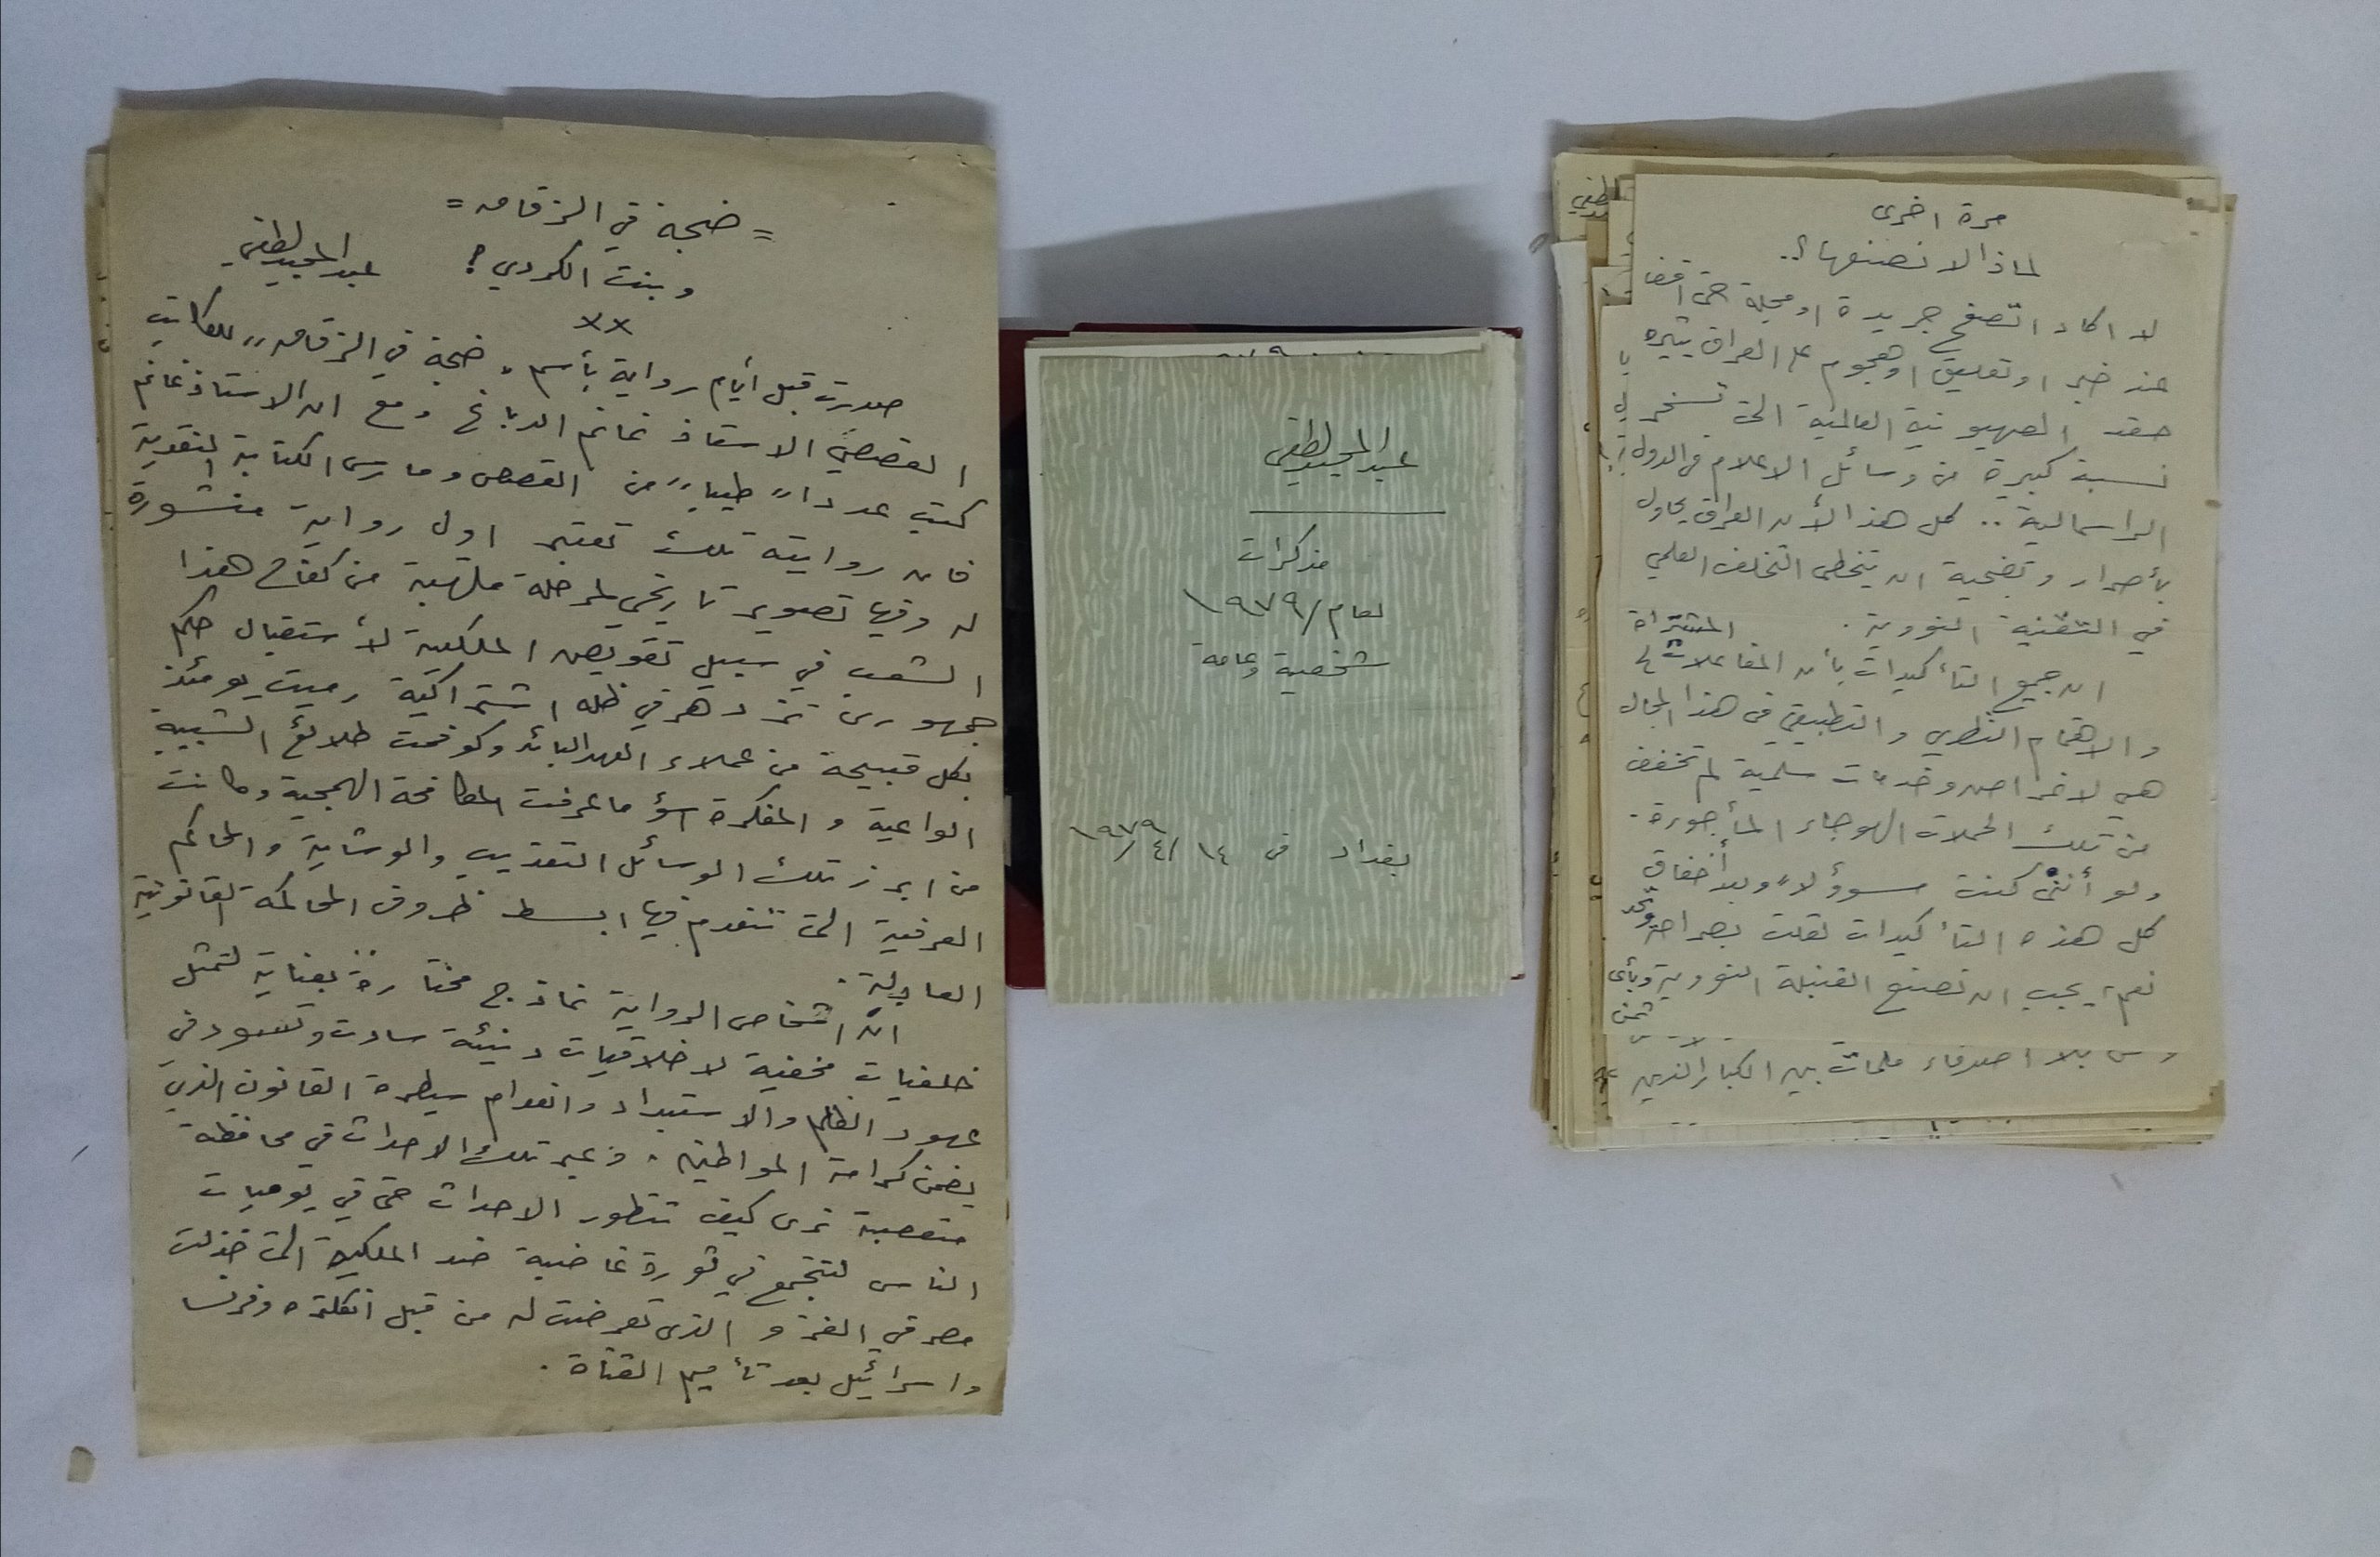 = ضجة في الزقاق =
وبنت الكردي ؟
عبد المجيد لطفي
××
صدرت قبل أيام رواية بأسم " ضجة في الزقاق " للكاتب
القصصي الاستاذ غانم الدباغ ومع ان الاستاذ غانم
كتب عددا" طيبا" من القصص ومارس الكتابة النقدية
فان روايته تلك تعتبر اول رواية منشورة
له وفيها تصوير تاريخي لمرحلة ملتهبة من كفاح هذا
الشعب في سبيل تقويض الملكية لأستقبال حكم
جمهوري تزدهر في ظله اشتراكية رميت يومئذ
بكل قبيحة من عملاء العهد البائد وكوفحت طلائع الشبيبة
الواعية والمفكرة اسؤ ما عرفت المكافحة الهمجية وكانت
من ابرز تلك الوسائل التعذيب والوشاية والمحاكم
العرفية التي تنعدم فيها ابسط ظروف المحاكمة القانونية
العادلة .
ان اشخاص الرواية نماذج مختارة بعناية لتمثل
خلفيات مخفية لاخلاقيات دنيئة سادت وتسود في
عهود الظلم والاستبداد وانعدام سيطرة القانون الذي
يضمن كرامة المواطنين . وعبر تلك الاحداث في محافظة
متعصبة نرى كيف تتطور الاحداث حتى في يوميات
الناس لتتجمع في ثورة غاضبة ضد الملكية التي خذلت
مصر في الغزو الذي تعرضت له من قبل انكلتره وفرنسا
واسرائيل بعد تأميم القناة .
عبد المجيد لطفي
مذكرات
لعام/١٩٧٩
شخصية وعامة
بغداد في ١٤/٤/١٩٧٩
مرة اخرى
لماذا لا نصنعها ؟..
لا اكاد اتصفح جريدة او مجلة حتى اقف
عند خبر او تعليق او هجوم على العراق يثيره
حقد الصهيونية العالمية التي تسخر
نسبة كبيرة من وسائل الاعلام في الدول
الراسمالية .. كل هذا لأن العراق يحاول
بأصرار وتضحية ان يتخطى التخلف العلمي
في التقنية النووية .
ان جميع التأكيدات بأن المفاعلات المشتراة
والاهتمام النظري والتطبيقي في هذا المجال
هي لاغراض وخدمات سلمية لم تخفف
من تلك الحملات الهوجاء المأجورة .
ولو أنني كنت مسؤولا" وبعد أخفاق
كل هذه التأكيدات لقلت بصراحة وتحد
نعم، يجب ان نصنع القنبلة النووية وبأي
ثمن
بلا اصدقاء بين الكبار الذين